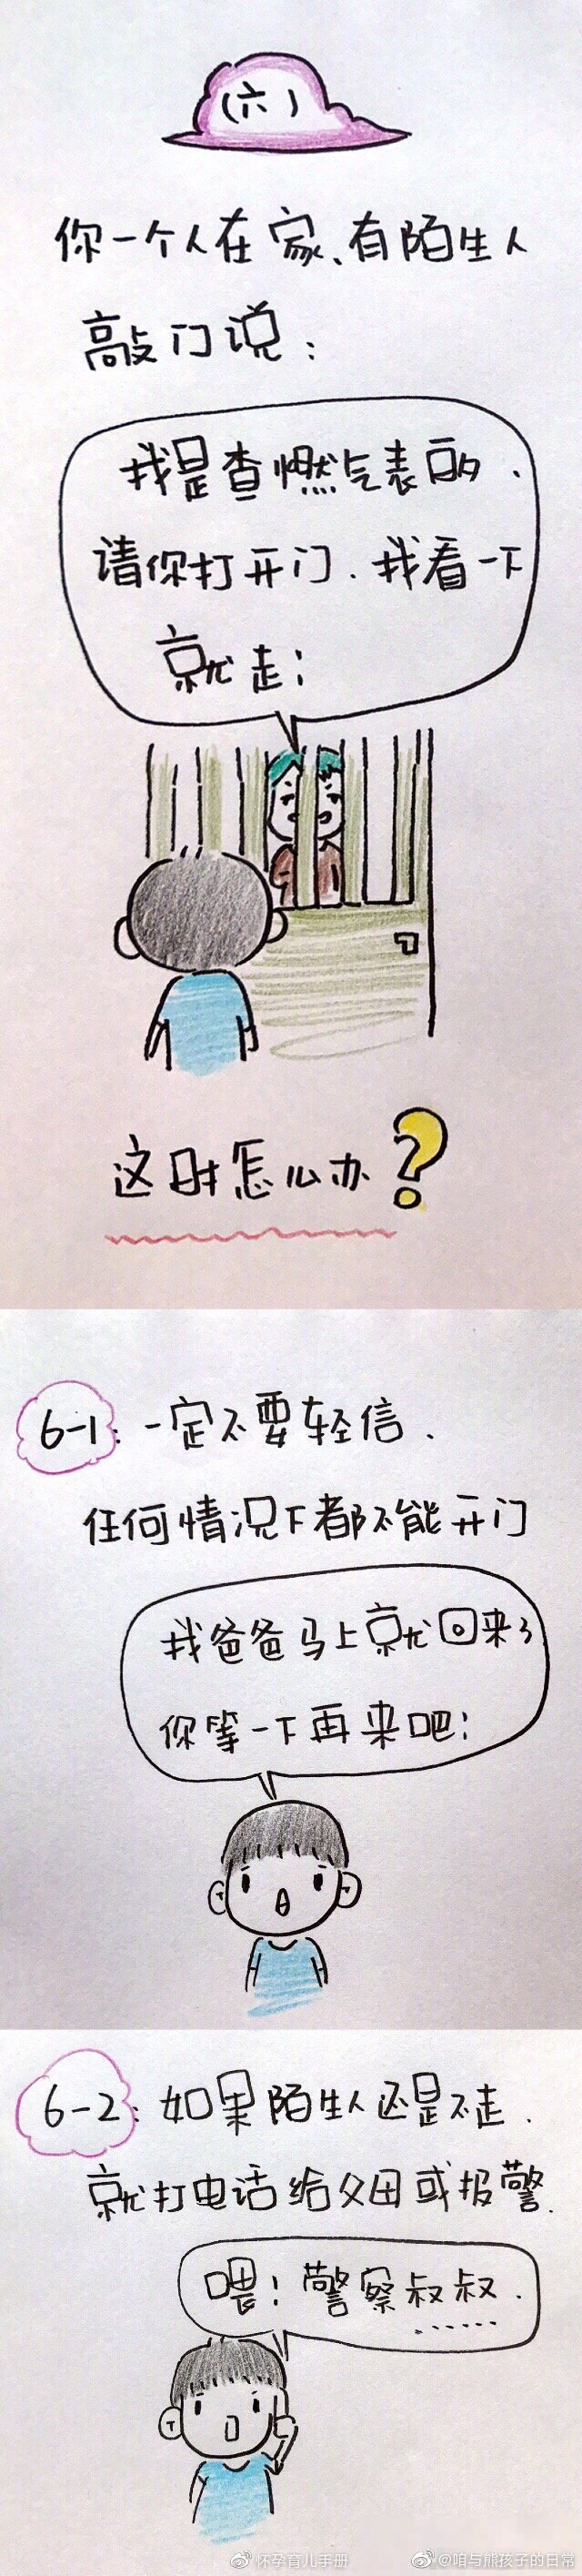 （六）
你一个人在家、有陌生人
敲门说：
我是查燃气表的.
请你打开门.我看一下
就走！
这时怎么办?
6-1：一定不要轻信.
任何情况下都不能开门
我爸爸马上就回来了
你等一下再来吧！
6-2：如果陌生人还是不走.
就打电话给父母或报警.
喂！警察叔叔.
......
怀孕育儿手册
@咱与熊孩子的日常